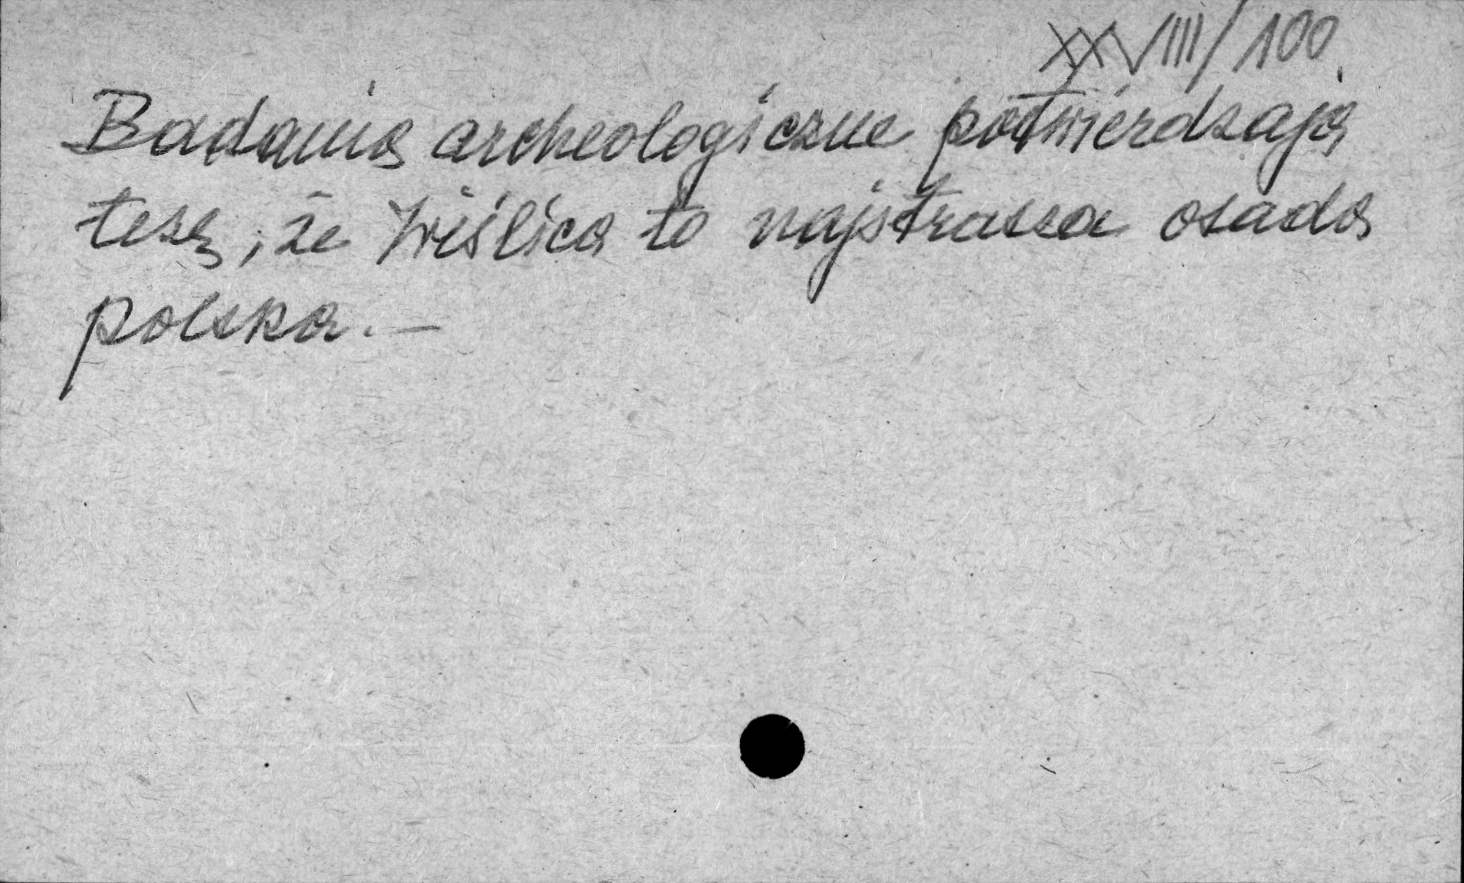 XXVIIII/100
Badania archeologiczne potwierdzają
tezę, że Wiślica to najstarsza osada
polska. —